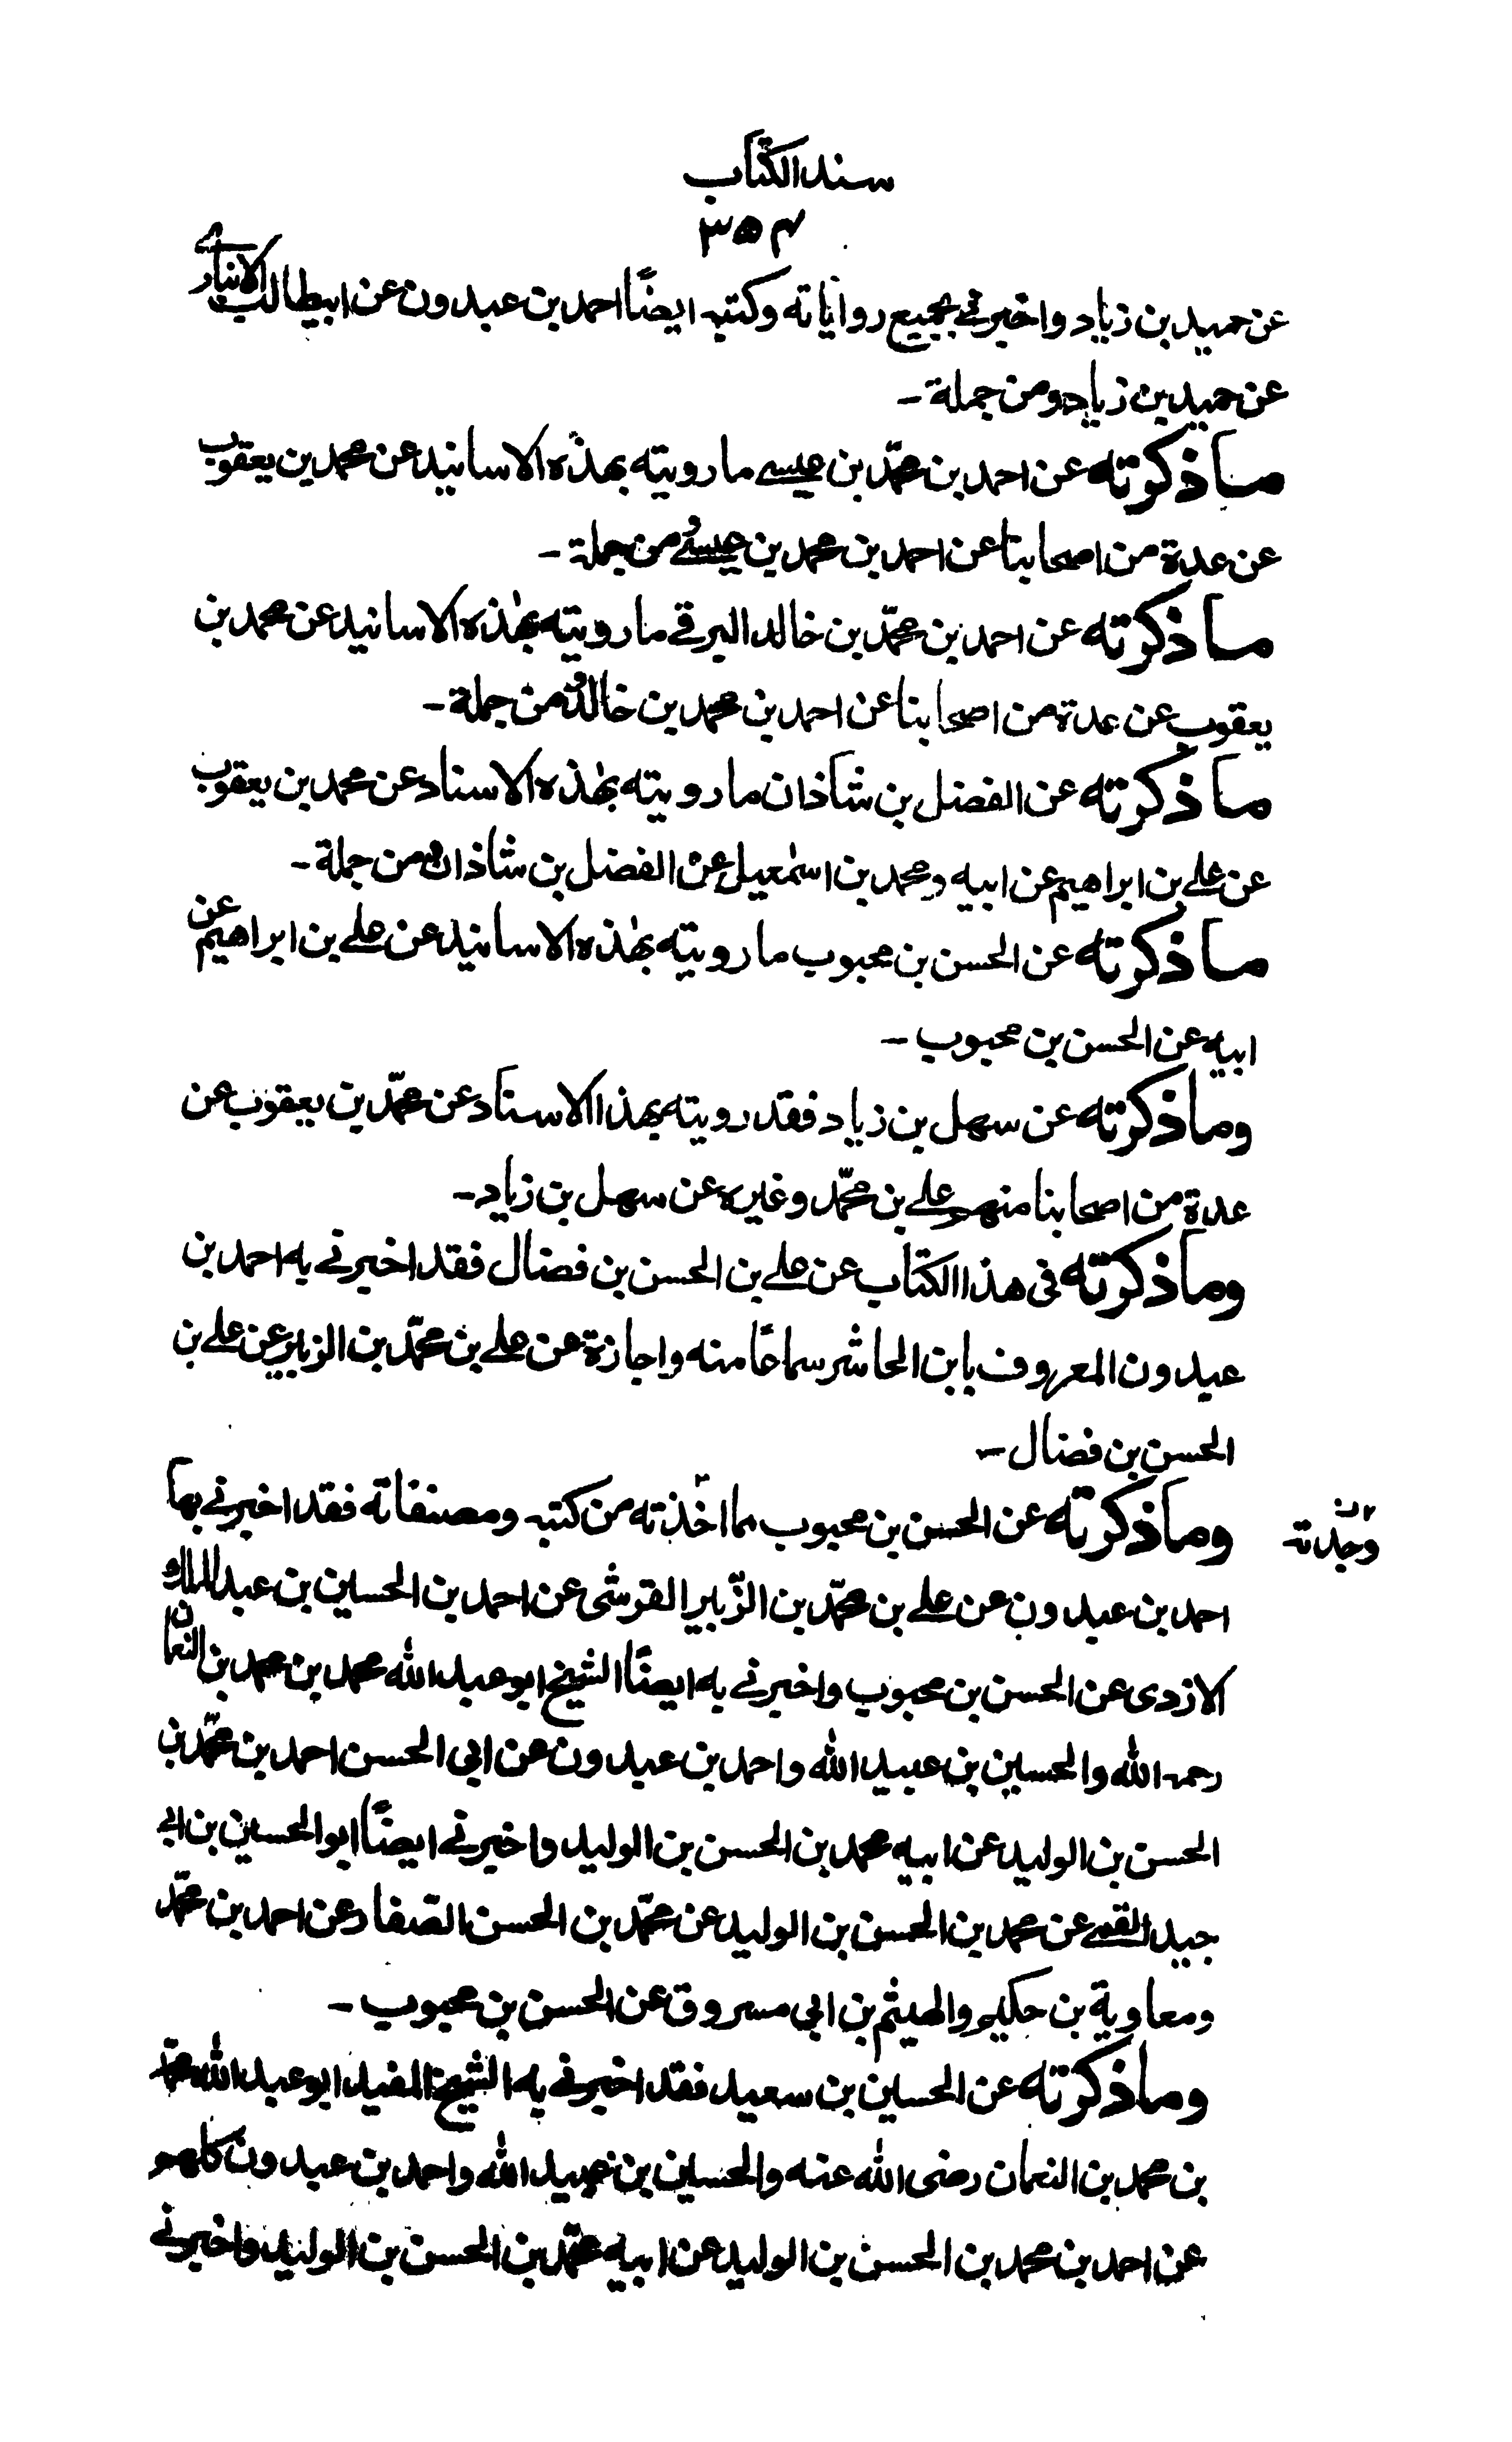 سند الكتاب
۳۵۴
عن حميد بن زياد واخبرنى بجميع رواياته وكتبه ايضًا احمد بن عبدون عن ابيطالب الانبارے
عن حميد بن زياد ومن جملة -
ما ذكرته عن احمد بن محمّد بن عيسے ما رويته بهذه الاسانيد عن محمد بن يعقوب
عن عدة من اصحابنا عن احمد بن محمد بن عيسے ومن جملة -
ما ذكرته عن احمد بن محمّد بن خالد البرقے ما رويته بهٰذه الاسانيد عن محمد بن
يعقوب عن عدة من اصحابنا عن احمد بن محمد بن خالد ومن جملة -
ما ذكرته عن الفضل بن شاذان ما رويته بهٰذه الاسناد عن محمد بن يعقوب
عن علے بن ابراهيم عن ابيه ومحمد بن اسمٰعيل عن الفضل بن شاذان ومن جملة -
ما ذكرته عن الحسن بن محبوب ما رويته بهٰذه الاسانيد عن علے بن ابراهيم عن
ابيه عن الحسن بن محبوب -
وما ذكرته عن سهل بن زياد فقد رويته بهذا الاسناد عن محمّد بن يعقوب عن
عدة من اصحابنا منهم علے بن محمّد وغيره عن سهل بن زياد -
وما ذكرته فى هذا الكتاب عن علے بن الحسن بن فضال فقد اخبرنے به احمد بن
عبدون المعروف بابن الحاشر سماعًا منه واجازة عن علے بن محمّد بن الزبير عن علے بن
الحسن بن فضال -
وما ذكرته عن الحسن بن محبوب مما اخذته من كتبه ومصنفاته فقد اخبرنے بها
وجدته
احمد بن عبدون عن علے بن محمّد بن الزّبير القرشى عن احمد بن الحسين بن عبد الملك
الازدى عن الحسن بن محبوب واخبرنے به ايضًا الشيخ ابو عبد الله محمد بن محمد بن النعمان
رحمه الله والحسين بن عبيد الله واحمد بن عبدون عن ابى الحسن احمد بن محمّد بن
الحسن بن الوليد عن ابيه محمد بن الحسن بن الوليد واخبرنے ايضًا ابو الحسين بن ابى
جيد القمے عن محمد بن الحسن بن الوليد عن محمّد بن الحسن الصّفار عن احمد بن محمّد
ومعاوية بن حكيم والهيثم بن ابى مسروق عن الحسن بن محبوب -
وما ذكرته عن الحسين بن سعيد فقد اخبرنے به الشيخ المفيد ابو عبد الله محمّد
بن محمد بن النعمان رضى الله عنه والحسين بن عبيد الله واحمد بن عبدون كلهم
عن احمد بن محمد بن الحسن بن الوليد عن ابيه محمّد بن الحسن بن الوليد واخبرنے